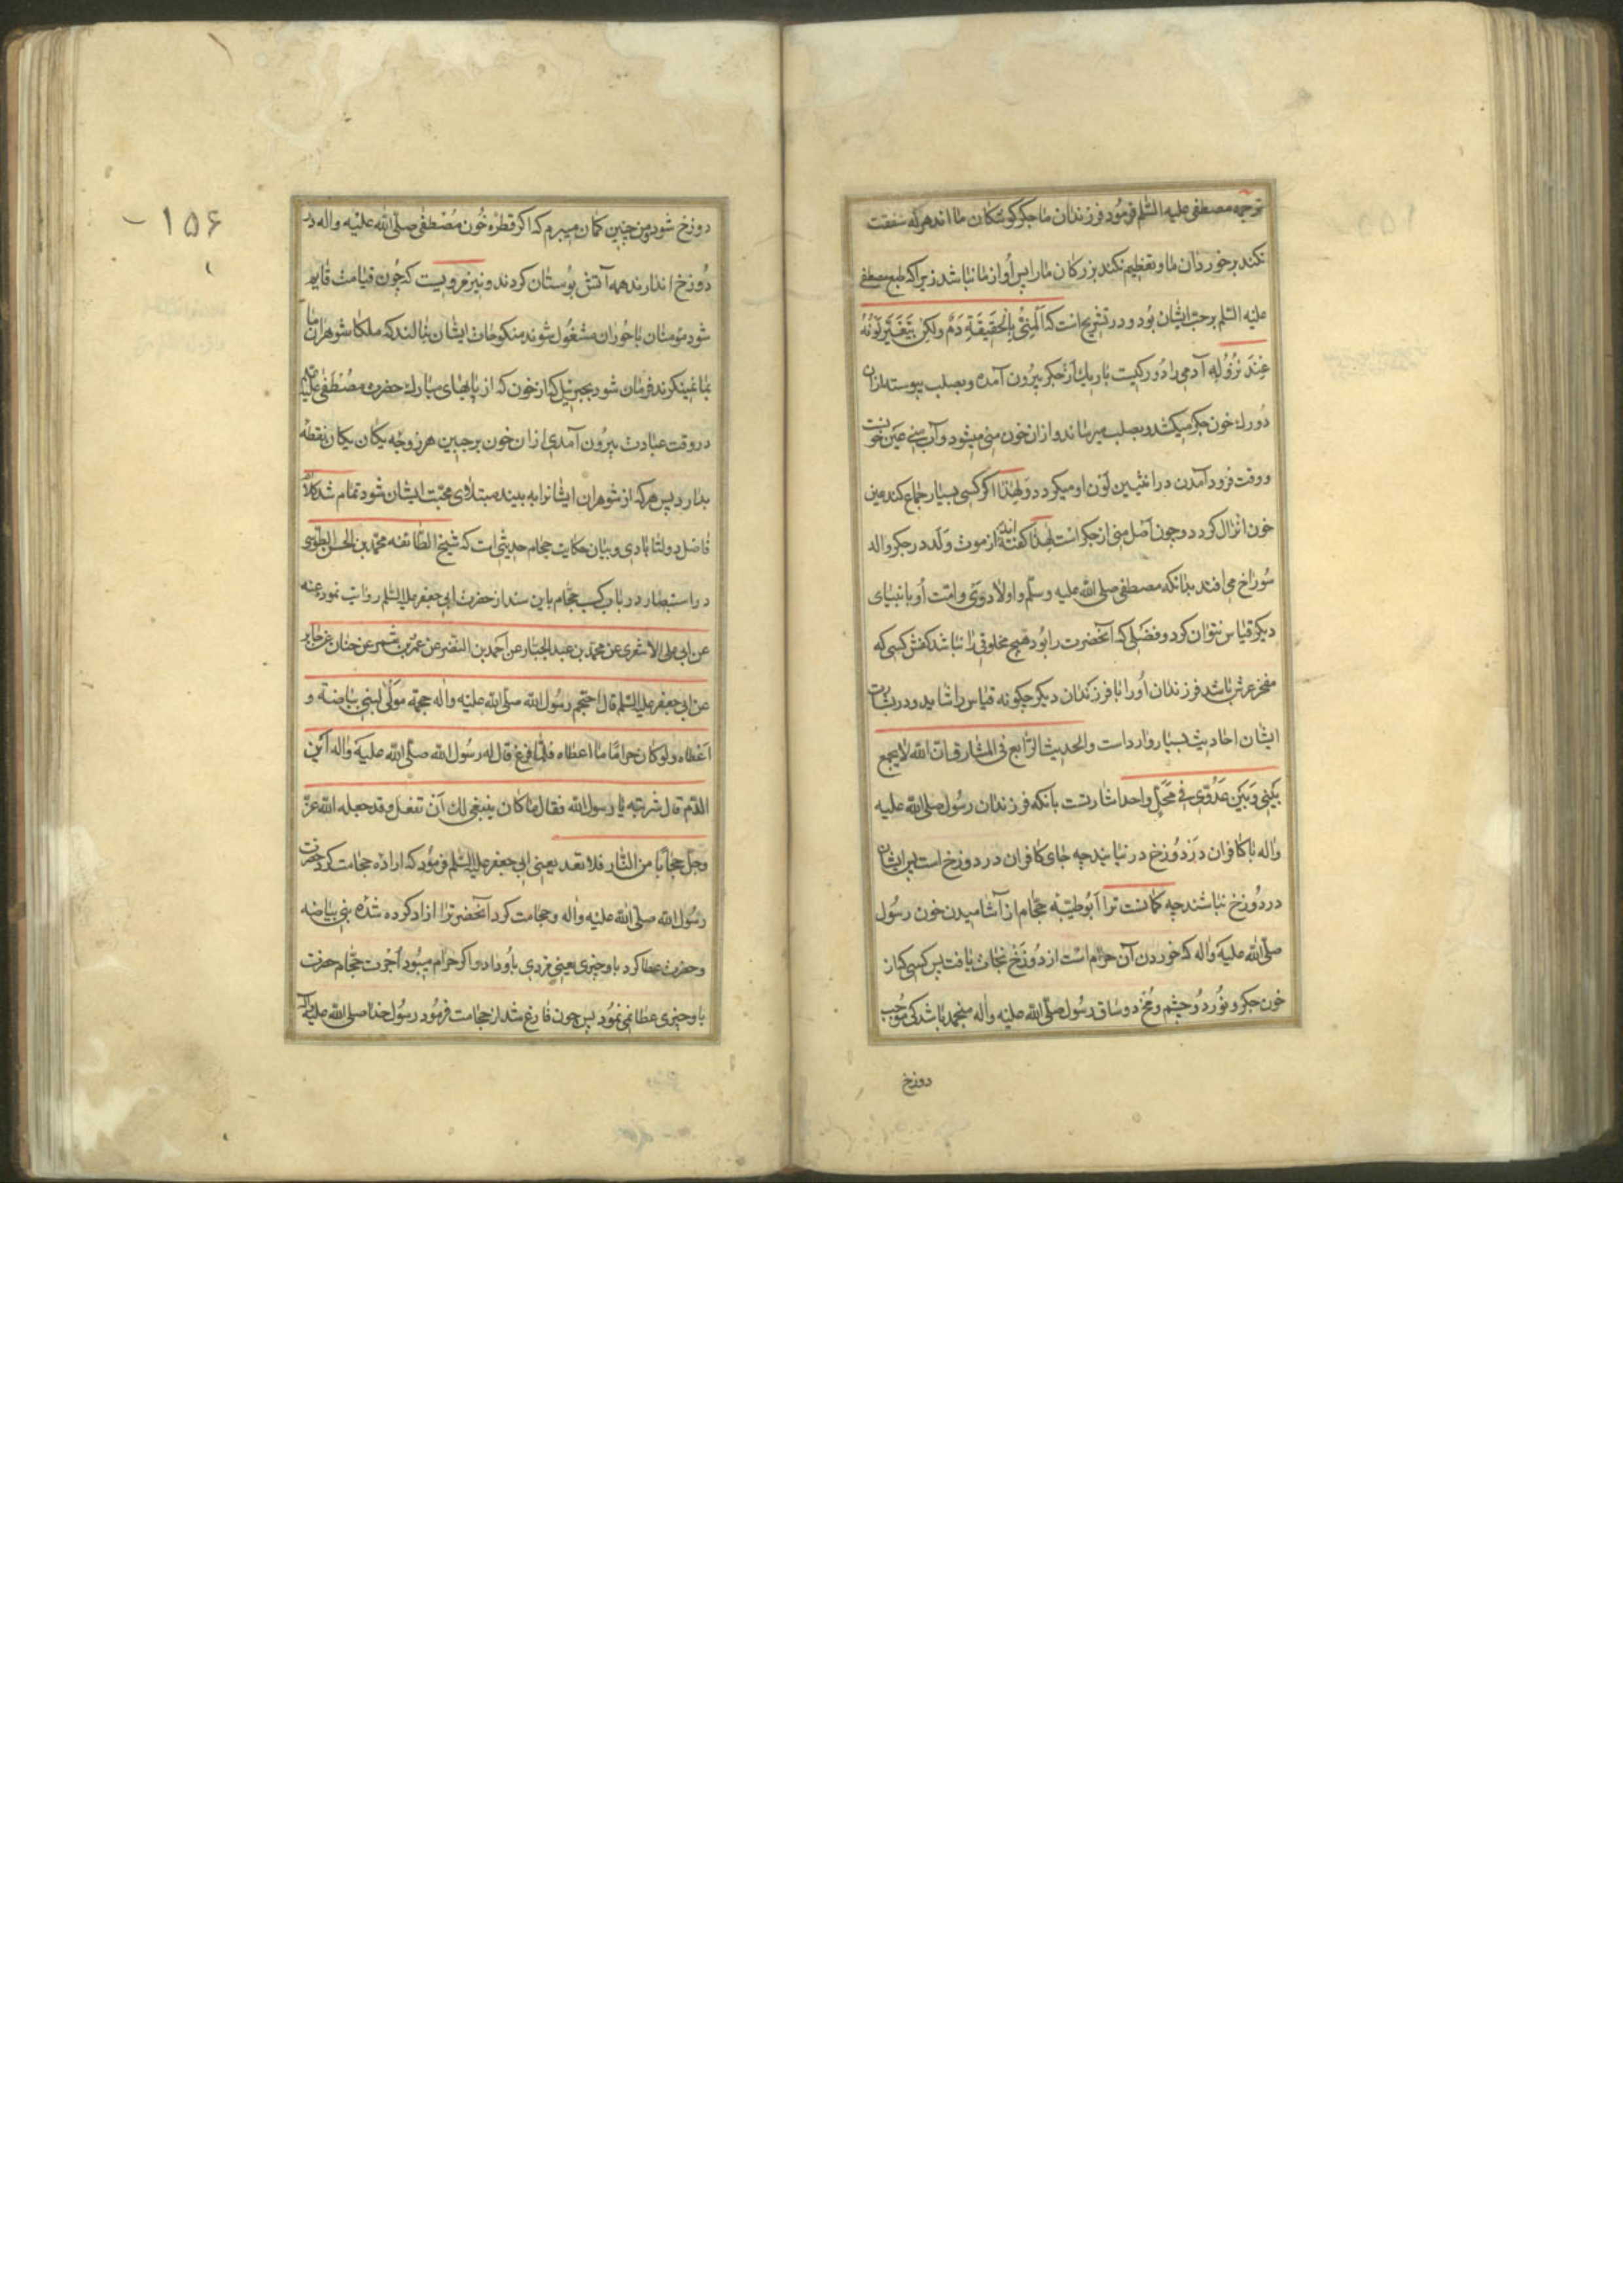 ترجمه مصطفی علیه السّلم فرمود فرزندان ما جگر گوشکان ما اند هر که شفقت
نکند بر خوردان ما و تعظیم نکند بزرکان ما را پس او از ما نباشد زیرا که طبع مصطفی
علیه السّلم بر حبّ ایشان بود و در تشریح است که اَلْمَنِیُّ بِالْحَقِیقَةِ دَمٌ ولکِن یَتَغَیَّرُ لَوْنُهُ
عِنْدَ نُزُوُلِهِ آدمی را دو رکیست باریک از جگر بیرون آمده و بصلب پیوسته ازان
دو رک خون جکر میکشد و بصلب میرساند و ازان خون منی میشود و آب منی عین خونست
و وقت فرود آمدن در انثیین لَوْن او میکردد و لهذا اگر کسی بسیار جماع کند عین
خون انزال کردد و چون اصل منی از جکر است لهذا گفته اند از موت وَلَد در جکر والد
سوراخ می افتد بدانکه مصطفی صلی الله علیه وسلّم و اولاد وَی و امّت اُو با نبیای
دیکر قیاس نتوان کرد و فضلی که آنحضرت را بود هیچ مخلوقی را نباشد کفش کسی که
مفخر عرش باشد فرزندان اُو را با فرزندان دیکر چکونه قیاس را شاید و در بشارت
ایشان احادیث بسیار وارد است والحدیث الرّابع فی المشارق انّ الله لا یجمع
بَیْنِی وَبَیْنَ عَدُوّی فِی مَحَلٍّ واحد اشارتست بانکه فرزندان رسُول صلی الله علیه
واله با کافران در دُوزخ در نیایند چه جای کافران در دوزخ است پس ایشان
در دُوزخ نباشند چه کمانست ترا اَبُو طیبه حجّام از آشامیدن خون رسُول
صلّی الله علیه واله که خوردن آن حرام است از دُوزخ نجات یافت پس کسی که از
خون جکر و نُور دو چشم و مُخّ دو ساق رسُول صلّی الله علیه واله منجمد باشد کی موجب
دوزخ
۱۵۶
دوزخ شود من چنین کمان میبرم که اکر قطره خُون مُصْطفی صلّی الله علیه واله در
دُوزخ اندازند همه آتش بُوستان کردند و نیز مرویست که چُون قیامت قایم
شود مؤمنان با حُوران مشغُول شوند منکوحات ایشان بنالند که ملکا شوهران ما
بما نمینکرند فرمان شود بجبرئیل که از خون که از پایهای مبارک حضرت مُصْطَفی علیه
در وقت عبادت بیرُون آمدی ازان خون بر جبین هر زوجه یکان یکان نقطه
بدارد پس هر که از شوهران ایشانرا به بیند مبتلای محبّت ایشان شود تمام شد کلام
فاضل دولتابادی و بیان حکایت حجام حدیثی است که شیخ الطّائفه محمّد بن الحسن الطّوسی
در استبصار در باب کسب حجّام باین سند از حضرت ابی جعفر علیه السّلم روایت نموده عنه
عن ابی علی الاشعری عن محمّد بن عبد الجبّار عن اَحمد بن النّضر عن عمرُو بن شمر عن جابر
عن ابی جعفر علیه السّلم قال احتجم رسُول الله صلّی الله علیه واله حجمه مَوْلًی لبنی بیاضة و
اَعْطاه ولو کان حرامًا ما اعطاه فلمّا فرغ قال له رسُول الله صلّی الله علیه واله اَیْن
الدّم قال شربته یا رسول الله فقال ما کان ینبغی لک اَنْ تفعل وقد جعله الله عزّ
وجلّ حجابًا من النّار فلا تعد یعنی ابی جعفر علیه السّلم فرمُود که اراده حجامت کرد حضرت
رسُول الله صلّی الله علیه واله و حجامت کرد آنحضرترا ازاد کرده شده بنی بیاضه
و حضرت عطا کرد باو چیزی یعنی مزدی باُو داد و اکر حرام میبُود اُجْرت حجّام حضرت
باو چیزی عطا نمی نمُود پس چون فارغ شد از حجامت فرمُود رسُول خدا صلی الله علیه واله